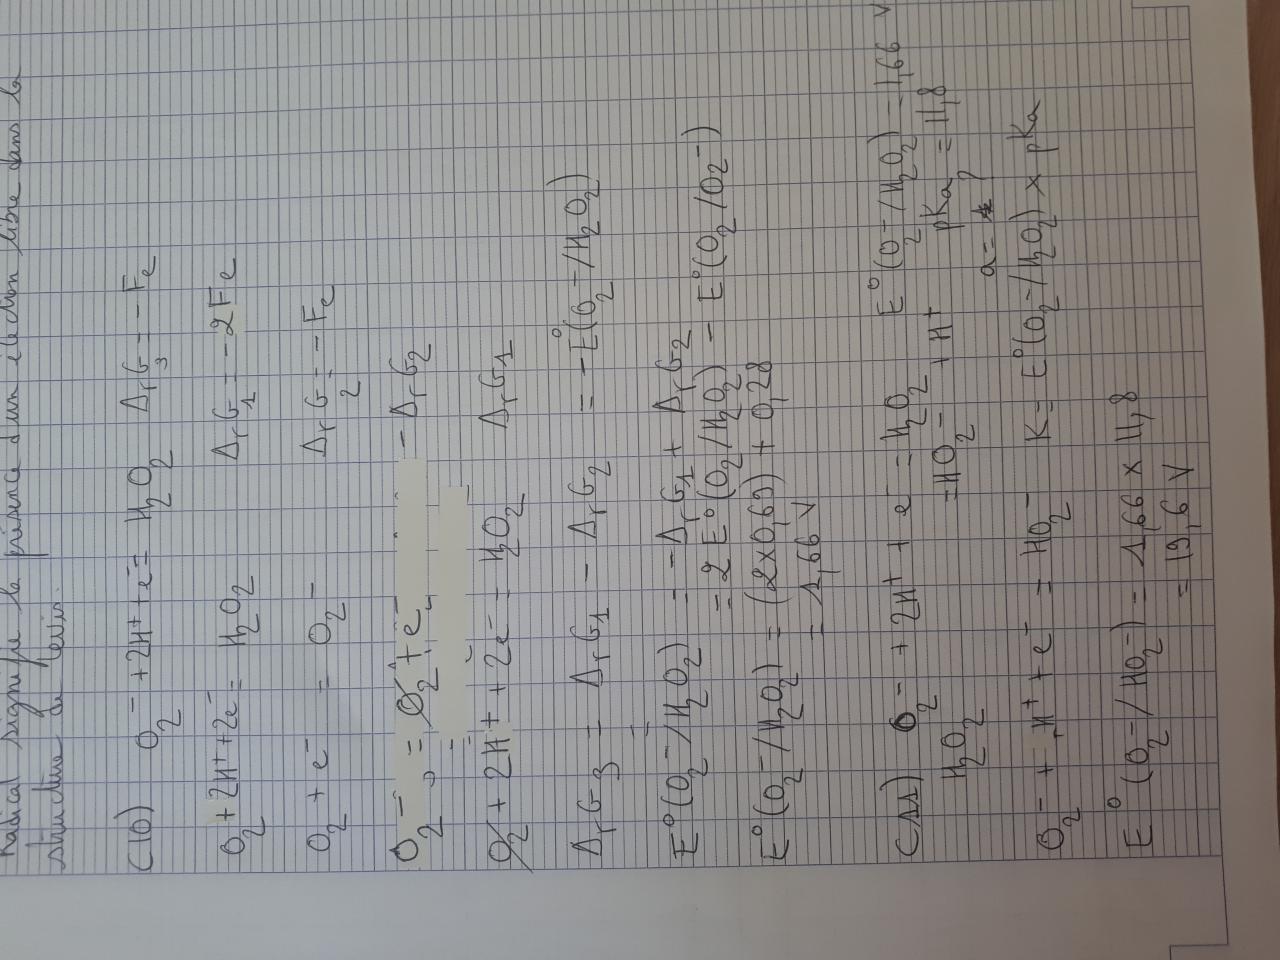 Radical signifie la présence d'un électron libre dans la
structure de Lewis.
C10) O₂⁻ + 2H⁺ + e⁻ = H₂O₂ ΔrG₃ = -Fe
O₂ + 2H⁺ + 2e⁻ = H₂O₂ ΔrG₁ = -2Fe
O₂ + e⁻ = O₂⁻ ΔrG₂ = -Fe
O₂⁻ = O₂ + e⁻ - ΔrG₂
O₂ + 2H⁺ + 2e⁻ = H₂O₂ ΔrG₁
ΔrG3 = ΔrG₁ - ΔrG₂ = -E°(O₂⁻/H₂O₂)
E°(O₂⁻/H₂O₂) = -ΔrG₁ + ΔrG₂
= 2E°(O₂/H₂O₂) - E°(O₂/O₂⁻)
E°(O₂⁻/H₂O₂) = (2x0,69) + 0,28
= 1,66 V
C11) O₂⁻ + 2H⁺ + e⁻ = H₂O₂ E°(O₂⁻/H₂O₂) = 1,66 V
H₂O₂ = HO₂⁻ + H⁺ pKa = 11,8
a = ?
O₂⁻ + H⁺ + e⁻ = HO₂⁻ K = E°(O₂⁻/H₂O₂) x pKa
E°(O₂⁻/HO₂⁻) = 1,66 x 11,8
= 19,6 V